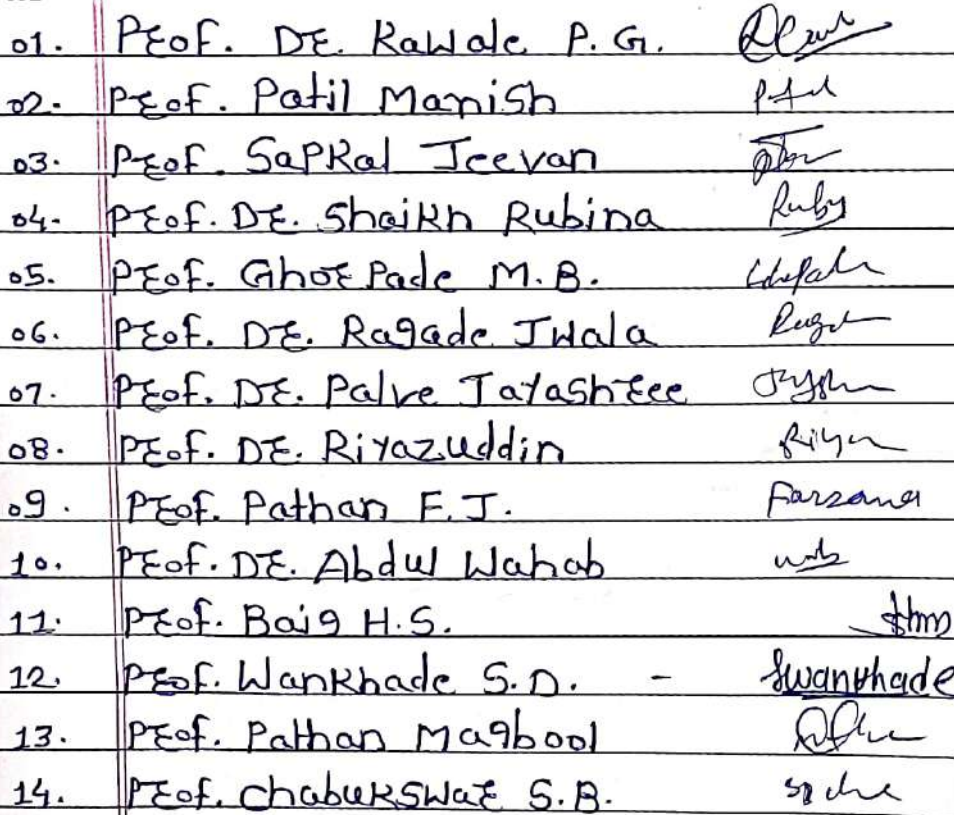 01. Prof. Dr. Kawale P. G.
02. Prof. Patil Manish
03. Prof. Sapkal Jeevan
04. Prof. Dr. Shaikh Rubina Ruby
05. Prof. Ghorpade M. B.
06. Prof. Dr. Ragade Jwala
07. Prof. Dr. Palve Jayashree
08. Prof. Dr. Riyazuddin
09. Prof. Pathan F. J. Farzana
10. Prof. Dr. Abdul Wahab
11. Prof. Baig H. S.
12. Prof. Wankhade S. D. - Swankhade
13. Prof. Pathan Maqbool
14. Prof. Chabukswar S. B.